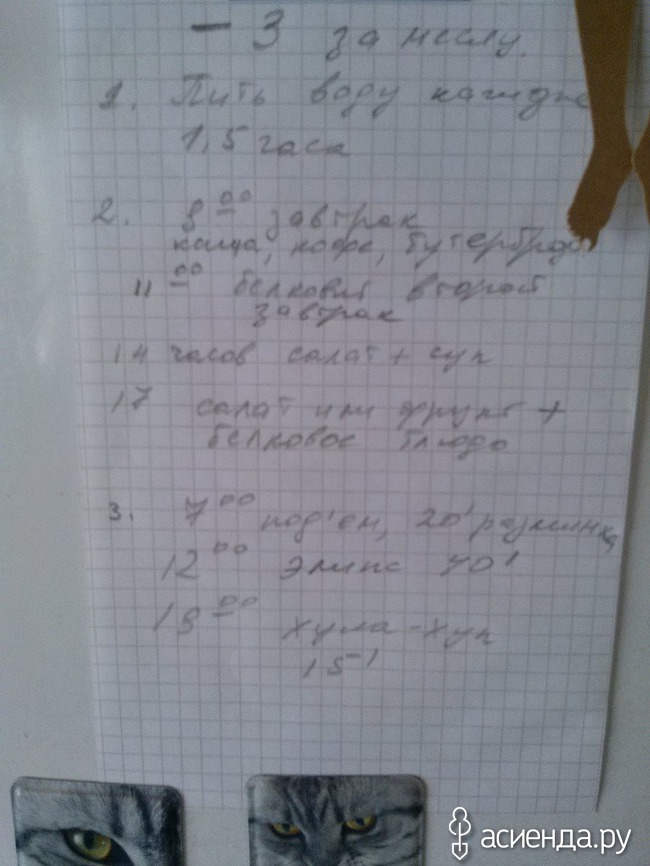 - 3 за неглу.
1. Пить воду каждые
1,5 часа
2. 8 00 завтрак
каша, кофе, бутерброд
11 00 белковый второй
завтрак
14 часов салат + суп
17 салат или фрукт +
белковое блюдо
3. 7 00 под'ем, 20' разминка
12 00 элипс 40'
19 00 хула-хуп
15'
асиенда.ру